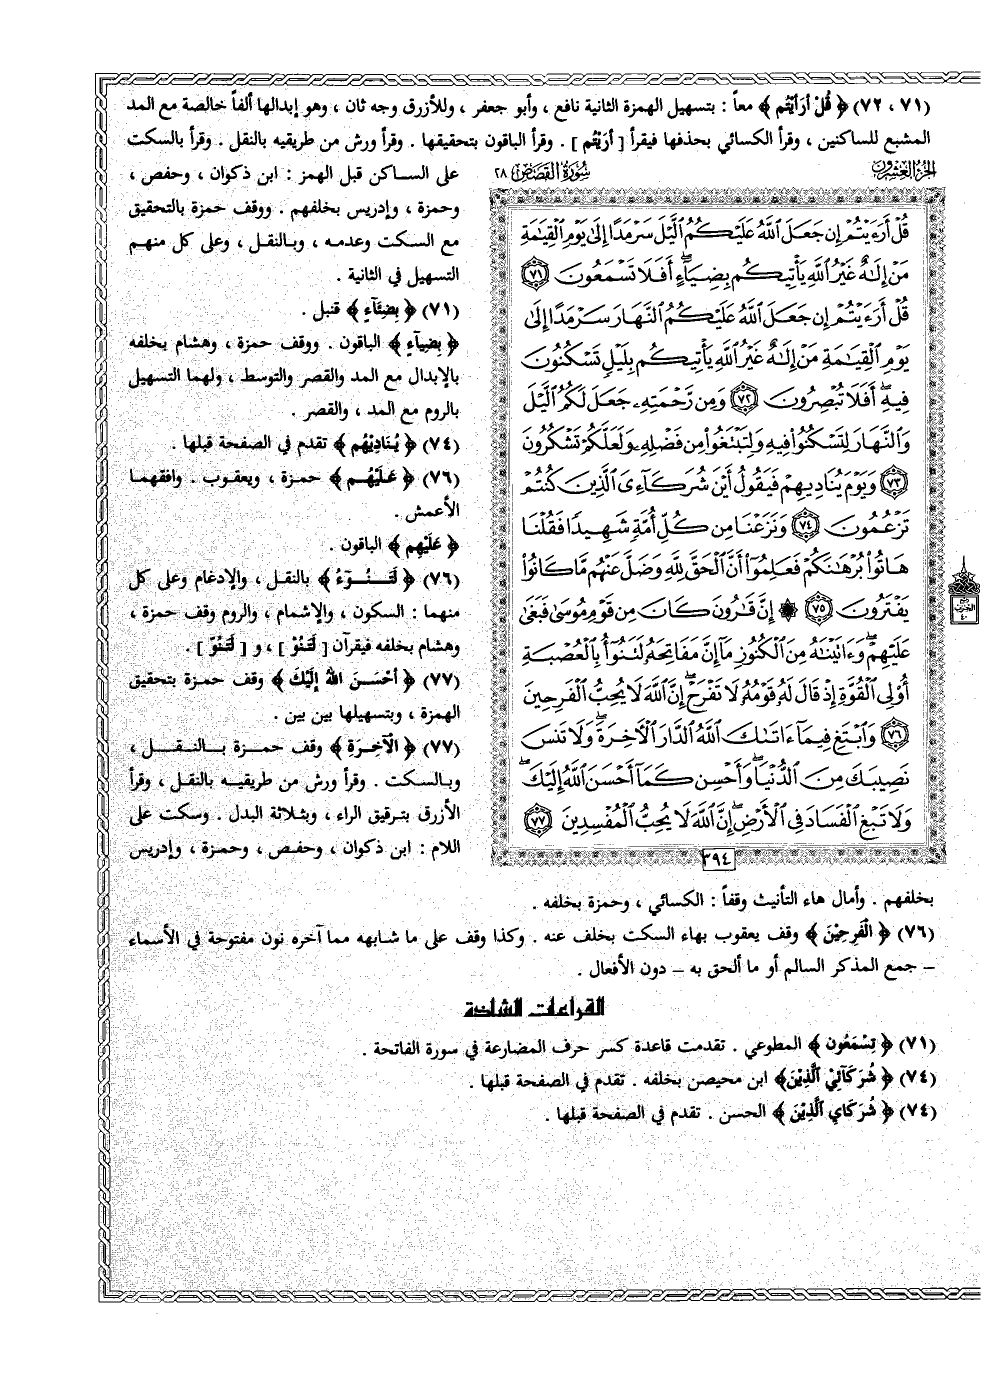 (٧١ ، ٧٢) ﴿ قُلْ أَرَأَيْتُم ﴾ معاً : بتسهيل الهمزة الثانية نافع ، وأبو جعفر ، وللأزرق وجه ثان ، وهو إبدالها ألفاً خالصة مع المد
المشبع للساكنين ، وقرأ الكسائي بحذفها فيقرأ [ أَرَيْتُم ] . وقرأ الباقون بتحقيقها . وقرأ ورش من طريقيه بالنقل . وقرأ بالسكت
على الساكن قبل الهمز : ابن ذكوان ، وحفص ،
وحمزة ، وإدريس بخلفهم . ووقف حمزة بالتحقيق
مع السكت وعدمه ، وبالنقل ، وعلى كل منهم
التسهيل في الثانية .
(٧١) ﴿ بِضِئَآءٍ ﴾ قنبل .
﴿ بِضِيَآءٍ ﴾ الباقون . ووقف حمزة ، وهشام بخلفه
بالإبدال مع المد والقصر والتوسط ، ولهما التسهيل
بالروم مع المد ، والقصر .
(٧٤) ﴿ يُنَادِيْهُم ﴾ تقدم في الصفحة قبلها .
(٧٦) ﴿ عَلَيْهُم ﴾ حمزة ، ويعقوب . وافقهما
الأعمش .
﴿ عَلَيْهِم ﴾ الباقون .
(٧٦) ﴿ لَتَنُوْءُ ﴾ بالنقل ، والإدغام وعلى كل
منهما : السكون ، والإشمام ، والروم وقف حمزة ،
وهشام بخلفه فيقرآن [ لَتَنُوْ ] ، و [ لَتَنُوّ ] .
(٧٧) ﴿ أَحْسَنَ اللهُ إِلَيْكَ ﴾ وقف حمزة بتحقيق
الهمزة ، وبتسهيلها بين بين .
(٧٧) ﴿ الْآخِرَة ﴾ وقف حمزة بالنقل ،
وبالسكت . وقرأ ورش من طريقيه بالنقل ، وقرأ
الأزرق بترقيق الراء ، وبثلاثة البدل . وسكت على
اللام : ابن ذكوان ، وحفص ، وحمزة ، وإدريس
الجزء العشرون
سورة القصص ٢٨
قُلْ أَرَءَيْتُمْ إِن جَعَلَ ٱللَّهُ عَلَيْكُمُ ٱلَّيْلَ سَرْمَدًا إِلَىٰ يَوْمِ ٱلْقِيَٰمَةِ
مَنْ إِلَٰهٌ غَيْرُ ٱللَّهِ يَأْتِيكُم بِضِيَآءٍ ۖ أَفَلَا تَسْمَعُونَ ٧١
قُلْ أَرَءَيْتُمْ إِن جَعَلَ ٱللَّهُ عَلَيْكُمُ ٱلنَّهَارَ سَرْمَدًا إِلَىٰ
يَوْمِ ٱلْقِيَٰمَةِ مَنْ إِلَٰهٌ غَيْرُ ٱللَّهِ يَأْتِيكُم بِلَيْلٍ تَسْكُنُونَ
فِيهِ ۖ أَفَلَا تُبْصِرُونَ ٧٢ وَمِن رَّحْمَتِهِۦ جَعَلَ لَكُمُ ٱلَّيْلَ
وَٱلنَّهَارَ لِتَسْكُنُوا۟ فِيهِ وَلِتَبْتَغُوا۟ مِن فَضْلِهِۦ وَلَعَلَّكُمْ تَشْكُرُونَ
٧٣ وَيَوْمَ يُنَادِيهِمْ فَيَقُولُ أَيْنَ شُرَكَآءِىَ ٱلَّذِينَ كُنتُمْ
تَزْعُمُونَ ٧٤ وَنَزَعْنَا مِن كُلِّ أُمَّةٍ شَهِيدًا فَقُلْنَا
هَاتُوا۟ بُرْهَٰنَكُمْ فَعَلِمُوٓا۟ أَنَّ ٱلْحَقَّ لِلَّهِ وَضَلَّ عَنْهُم مَّا كَانُوا۟
يَفْتَرُونَ ٧٥ ۞ إِنَّ قَٰرُونَ كَانَ مِن قَوْمِ مُوسَىٰ فَبَغَىٰ
عَلَيْهِمْ ۖ وَءَاتَيْنَٰهُ مِنَ ٱلْكُنُوزِ مَآ إِنَّ مَفَاتِحَهُۥ لَتَنُوٓأُ بِٱلْعُصْبَةِ
أُو۟لِى ٱلْقُوَّةِ إِذْ قَالَ لَهُۥ قَوْمُهُۥ لَا تَفْرَحْ ۖ إِنَّ ٱللَّهَ لَا يُحِبُّ ٱلْفَرِحِينَ
٧٦ وَٱبْتَغِ فِيمَآ ءَاتَىٰكَ ٱللَّهُ ٱلدَّارَ ٱلْءَاخِرَةَ ۖ وَلَا تَنسَ
نَصِيبَكَ مِنَ ٱلدُّنْيَا ۖ وَأَحْسِن كَمَآ أَحْسَنَ ٱللَّهُ إِلَيْكَ ۖ
وَلَا تَبْغِ ٱلْفَسَادَ فِى ٱلْأَرْضِ ۖ إِنَّ ٱللَّهَ لَا يُحِبُّ ٱلْمُفْسِدِينَ ٧٧
٣٩٤
بخلفهم . وأمال هاء التأنيث وقفاً : الكسائي ، وحمزة بخلفه .
(٧٦) ﴿ الْفَرِحِيْنَ ﴾ وقف يعقوب بهاء السكت بخلف عنه . وكذا وقف على ما شابهه مما آخره نون مفتوحة في الأسماء
– جمع المذكر السالم أو ما ألحق به – دون الأفعال .
القراءات الشاذة
(٧١) ﴿ تِسْمَعُون ﴾ المطوعي . تقدمت قاعدة كسر حرف المضارعة في سورة الفاتحة .
(٧٤) ﴿ شُرَكَآئِيْ الَّذِيْنَ﴾ ابن محيصن بخلفه . تقدم في الصفحة قبلها .
(٧٤) ﴿ شُرَكَايَ الَّذِيْنَ ﴾ الحسن . تقدم في الصفحة قبلها .